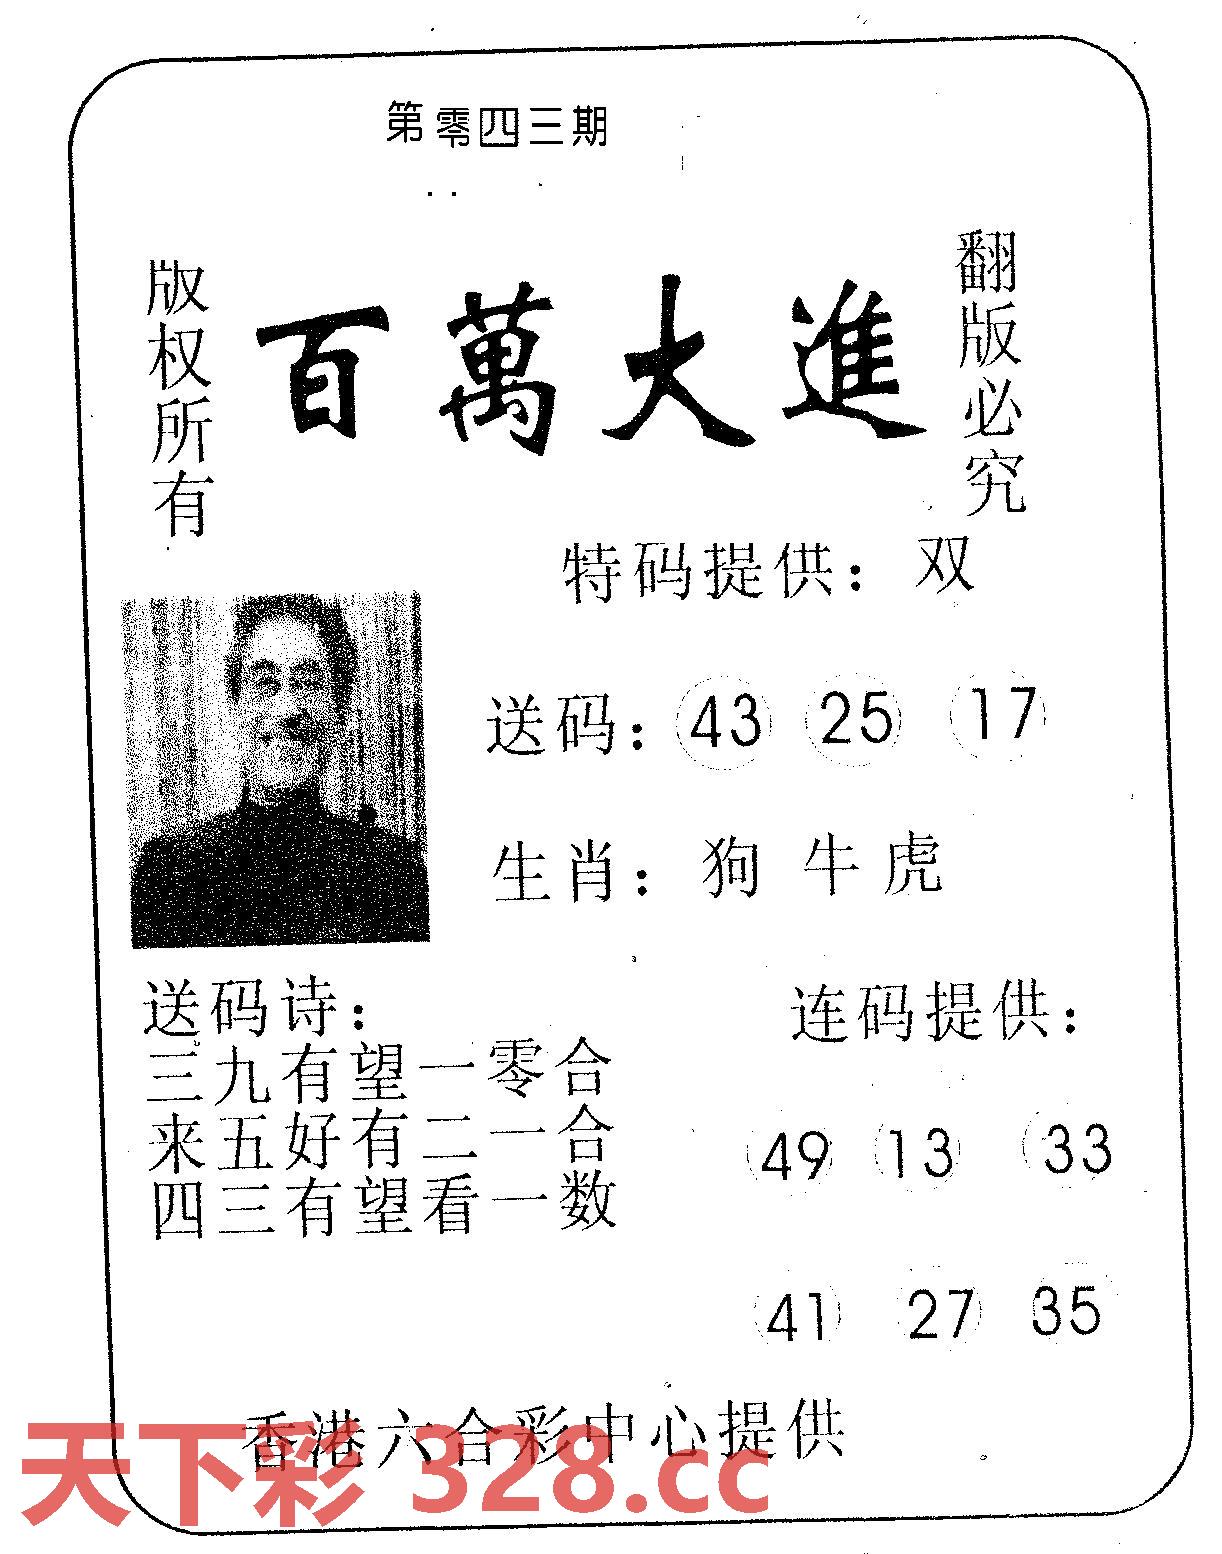 第零四三期
版权所有
百萬大進
翻版必究
特码提供：双
送码：43 25 17
生肖：狗 牛 虎
送码诗：
三九有望一零合
来五好有二一合
四三有望看一数
连码提供：
49 13 33
41 27 35
香港六合彩中心提供
天下彩 328.cc